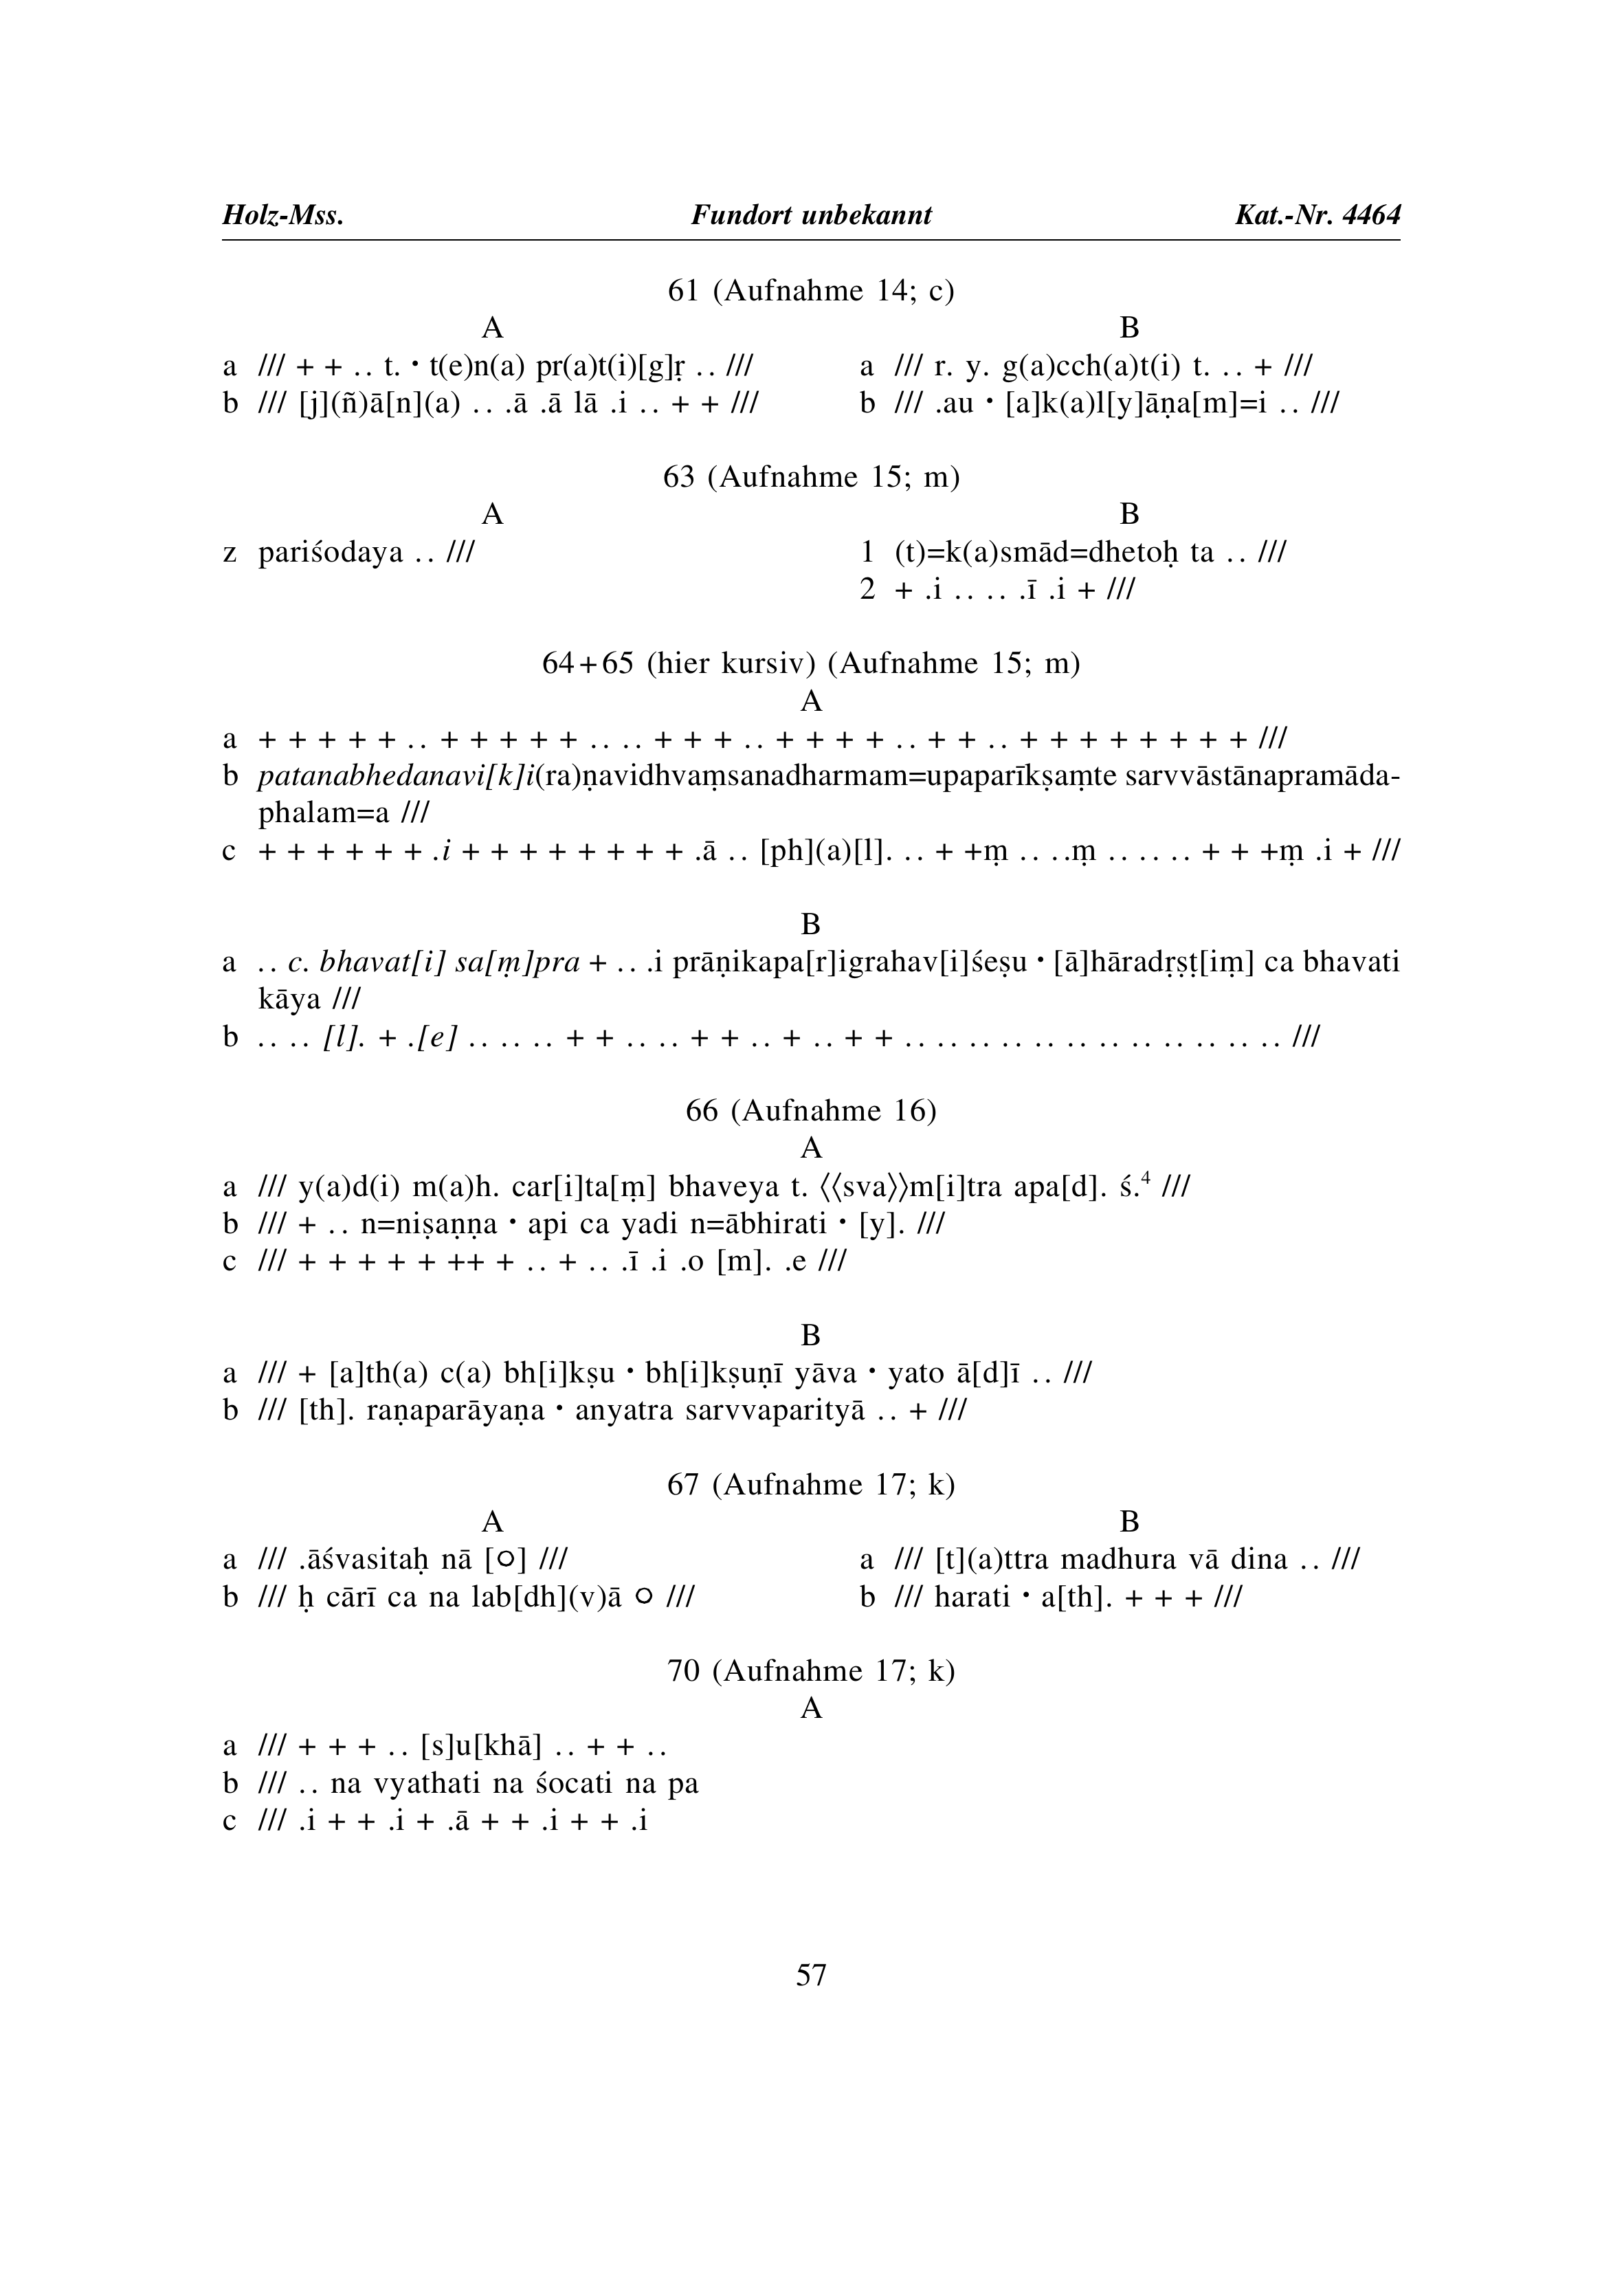 Holz-Mss. Fundort unbekannt Kat.-Nr. 4464
61 (Aufnahme 14; c)
A
a /// + + .. t. · t(e)n(a) pr(a)t(i)[g]ṛ .. ///
b /// [j](ñ)ā[n](a) .. .ā .ā lā .i .. + + ///
B
a /// r. y. g(a)cch(a)t(i) t. .. + ///
b /// .au · [a]k(a)l[y]āṇa[m]=i .. ///
63 (Aufnahme 15; m)
A
z pariśodaya .. ///
B
1 (t)=k(a)smād=dhetoḥ ta .. ///
2 + .i .. .. .ī .i + ///
64+65 (hier kursiv) (Aufnahme 15; m)
A
a + + + + + .. + + + + + .. .. + + + .. + + + + .. + + .. + + + + + + + + ///
b patanabhedanavi[k]i(ra)ṇavidhvaṃsanadharmam=upaparīkṣaṃte sarvvāstānapramāda-
phalam=a ///
c + + + + + + .i + + + + + + + + .ā .. [ph](a)[l]. .. + +ṃ .. ..ṃ .. .. .. + + +ṃ .i + ///
B
a .. c. bhavat[i] sa[ṃ]pra + .. .i prāṇikapa[r]igrahav[i]śeṣu · [ā]hāradṛṣṭ[iṃ] ca bhavati
kāya ///
b .. .. [l]. + .[e] .. .. .. + + .. .. + + .. + .. + + .. .. .. .. .. .. .. .. .. .. .. .. ///
66 (Aufnahme 16)
A
a /// y(a)d(i) m(a)h. car[i]ta[ṃ] bhaveya t. ⟨⟨sva⟩⟩m[i]tra apa[d]. ś.⁴ ///
b /// + .. n=niṣaṇṇa · api ca yadi n=ābhirati · [y]. ///
c /// + + + + + ++ + .. + .. .ī .i .o [m]. .e ///
B
a /// + [a]th(a) c(a) bh[i]kṣu · bh[i]kṣuṇī yāva · yato ā[d]ī .. ///
b /// [th]. raṇaparāyaṇa · anyatra sarvvaparityā .. + ///
67 (Aufnahme 17; k)
A
a /// .āśvasitaḥ nā [○] ///
b /// ḥ cārī ca na lab[dh](v)ā ○ ///
B
a /// [t](a)ttra madhura vā dina .. ///
b /// harati · a[th]. + + + ///
70 (Aufnahme 17; k)
A
a /// + + + .. [s]u[khā] .. + + ..
b /// .. na vyathati na śocati na pa
c /// .i + + .i + .ā + + .i + + .i
57